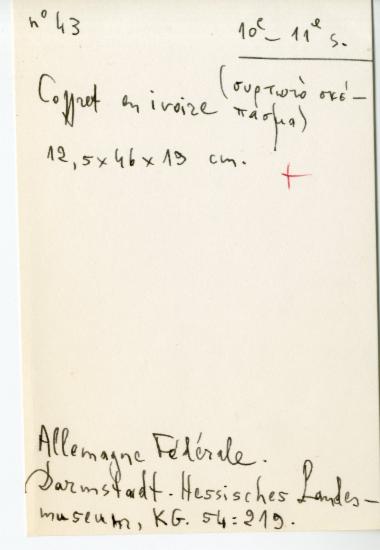 nº 43
10e - 11e s.
Coffret en ivoire (συρτωτὸ σκέ-
πασμα)
12,5 x 46 x 19 cm.
Allemagne Fédérale.
Darmstadt - Hessisches Landes-
museum, KG. 54:219.